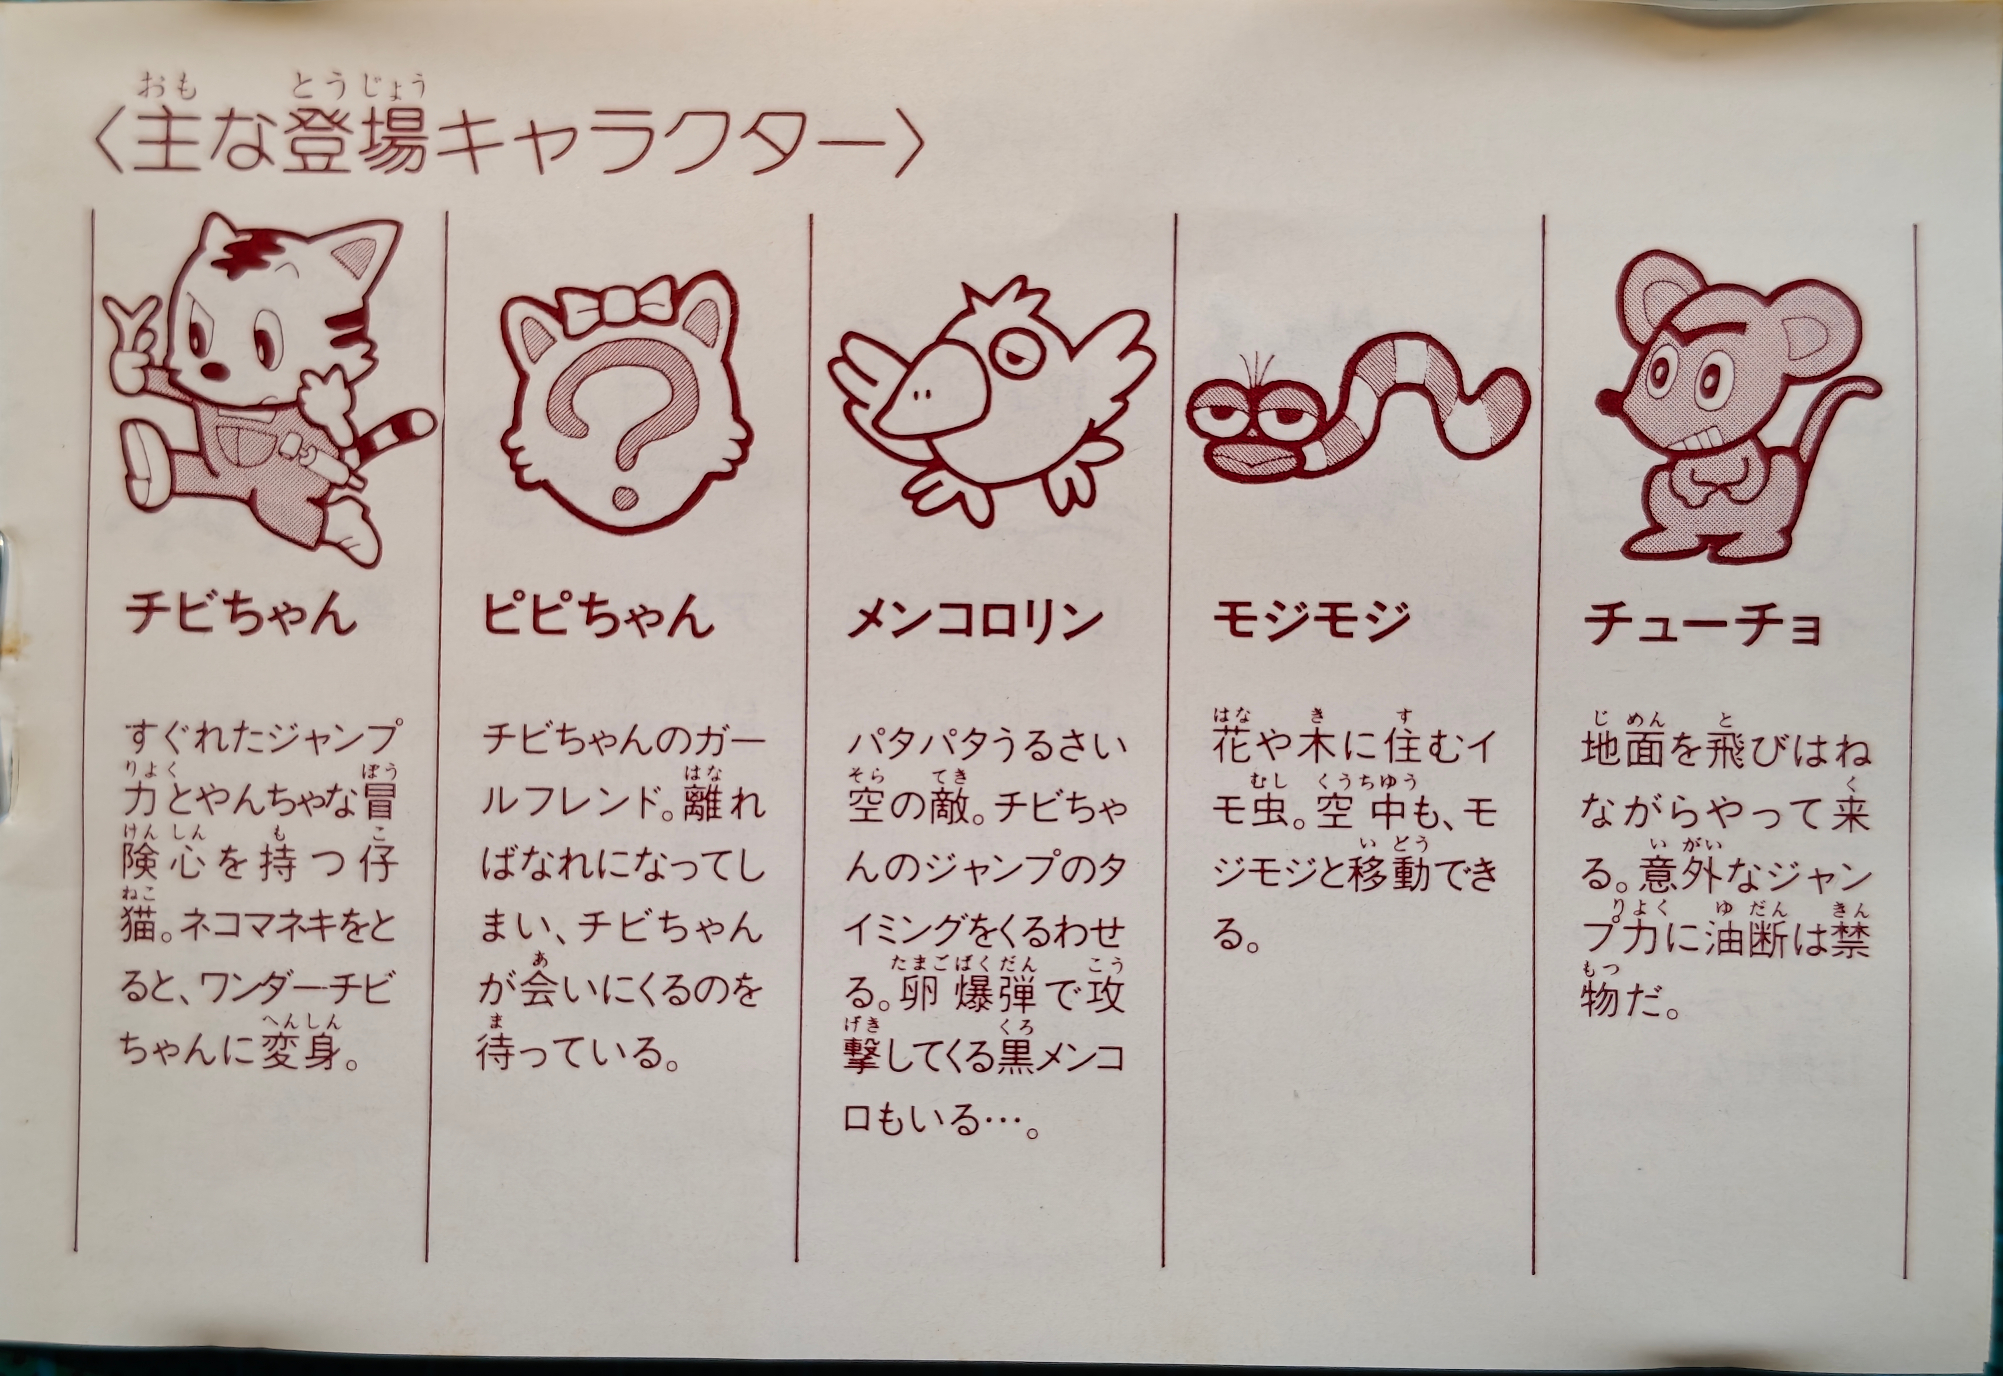 〈主な登場キャラクター〉
チビちゃん
すぐれたジャンプ
力とやんちゃな冒
険心を持つ仔
猫。ネコマネキをと
ると、ワンダーチビ
ちゃんに変身。
ピピちゃん
チビちゃんのガー
ルフレンド。離れ
ばなれになってし
まい、チビちゃん
が会いにくるのを
待っている。
メンコロリン
パタパタうるさい
空の敵。チビちゃ
んのジャンプのタ
イミングをくるわせ
る。卵爆弾で攻
撃してくる黒メンコ
ロもいる…。
モジモジ
花や木に住むイ
モ虫。空中も、モ
ジモジと移動でき
る。
チューチョ
地面を飛びはね
ながらやって来
る。意外なジャン
プ力に油断は禁
物だ。